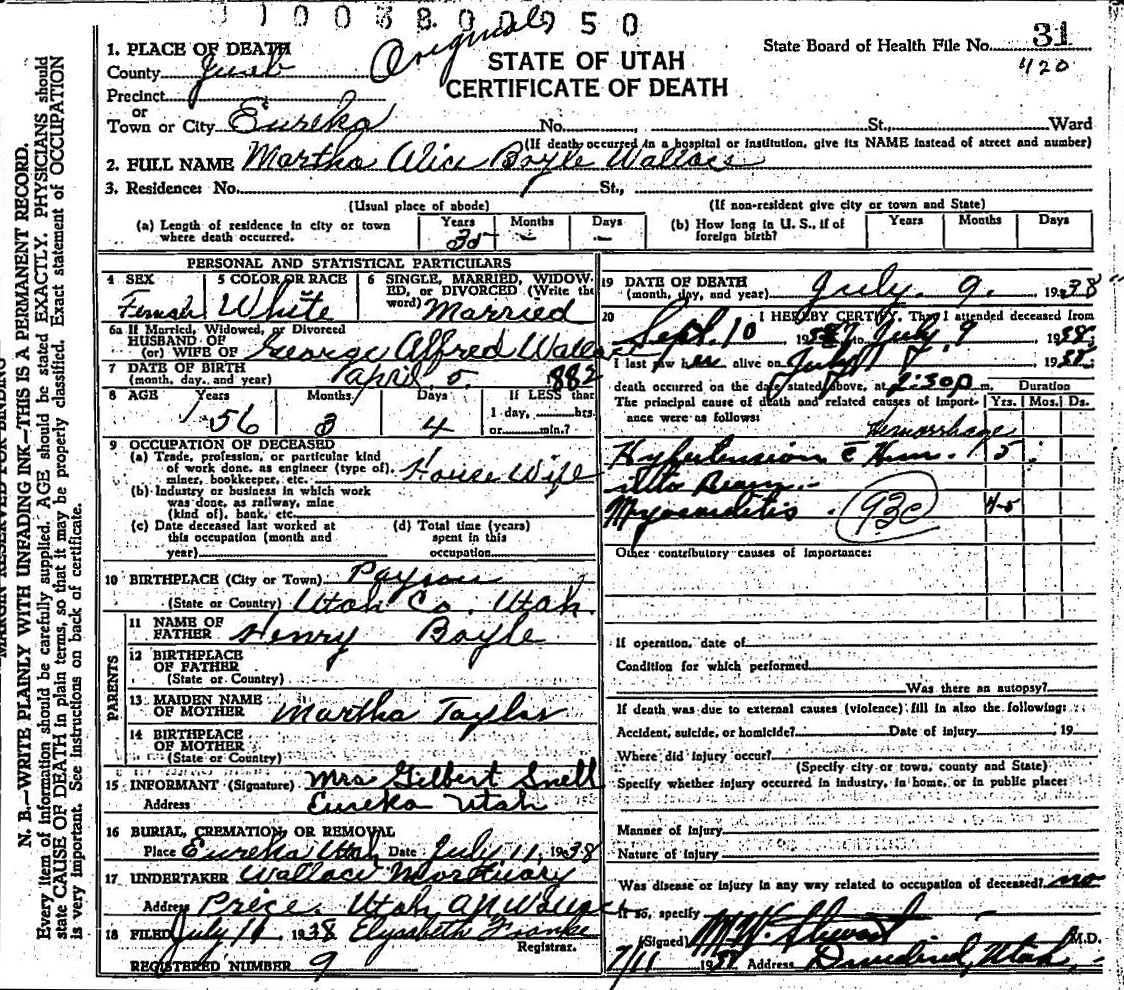 Original 50
1. PLACE OF DEATH
County Juab
Precinct
or
Town or City Eureka No. St., Ward
STATE OF UTAH
CERTIFICATE OF DEATH
State Board of Health File No. 31
420
(If death occurred in a hospital or institution, give its NAME instead of street and number)
2. FULL NAME Martha Alice Boyle Wallace
3. Residence: No. St.,
(Usual place of abode) (If non-resident give city or town and State)
(a) Length of residence in city or town where death occurred. Years 35 Months — Days —
(b) How long in U. S., if of foreign birth? Years Months Days
PERSONAL AND STATISTICAL PARTICULARS
4 SEX Female
5 COLOR OR RACE White
6 SINGLE, MARRIED, WIDOWED, OR DIVORCED (Write the word) Married
6a If Married, Widowed, or Divorced
HUSBAND OF
(or) WIFE OF George Alfred Wallace
7 DATE OF BIRTH
(month, day, and year) April 5. 1882
8 AGE Years 56 Months 3 Days 4 If LESS than
1 day, hrs.
or min.?
9 OCCUPATION OF DECEASED
(a) Trade, profession, or particular kind
of work done, as engineer (type of), House Wife
miner, bookkeeper, etc.
(b) Industry or business in which work
was done, as railway, mine
(kind of), bank, etc.
(c) Date deceased last worked at
this occupation (month and
year)
(d) Total time (years)
spent in this
occupation
10 BIRTHPLACE (City or Town) Payson
(State or Country) Utah Co. Utah.
PARENTS
11 NAME OF
FATHER Henry Boyle
12 BIRTHPLACE
OF FATHER
(State or Country)
13 MAIDEN NAME
OF MOTHER Martha Taylor
14 BIRTHPLACE
OF MOTHER
(State or Country)
15 INFORMANT (Signature) Mrs Gilbert Snell
Address Eureka Utah
16 BURIAL, CREMATION, OR REMOVAL
Place Eureka Utah Date July 11, 1938
17 UNDERTAKER Wallace Mortuary
Address Price. Utah
18 FILED July 11 1938 Elyzabeth Franke
Registrar.
REGISTERED NUMBER 9
19 DATE OF DEATH
(month, day, and year) July. 9. 1938
20 I HEREBY CERTIFY, That I attended deceased from
Sept. 10 1937 to July 9 1938;
I last saw her alive on July 1938;
death occurred on the date stated above, at 2:30p m. Duration
The principal cause of death and related causes of importance were as follows: Yrs. Mos. Ds.
Hemorrhage
Hypertension c̄ Hem. 5
into Brain
Myocarditis. 93c 4-5
Other contributory causes of importance:
If operation, date of
Condition for which performed
Was there an autopsy?
If death was due to external causes (violence) fill in also the following:
Accident, suicide, or homicide? Date of injury 19
Where did injury occur?
(Specify city or town, county and State)
Specify whether injury occurred in industry, in home, or in public place:
Manner of injury
Nature of injury
Was disease or injury in any way related to occupation of deceased? no
If so, specify
(Signed) Stewart M.D.
7/11 1938 Address Dividend, Utah
MARGIN RESERVED FOR BINDING
N. B.—WRITE PLAINLY WITH UNFADING INK—THIS IS A PERMANENT RECORD.
Every item of information should be carefully supplied. AGE should be stated EXACTLY. PHYSICIANS should
state CAUSE OF DEATH in plain terms, so that it may be properly classified. Exact statement of OCCUPATION
is very important. See instructions on back of certificate.